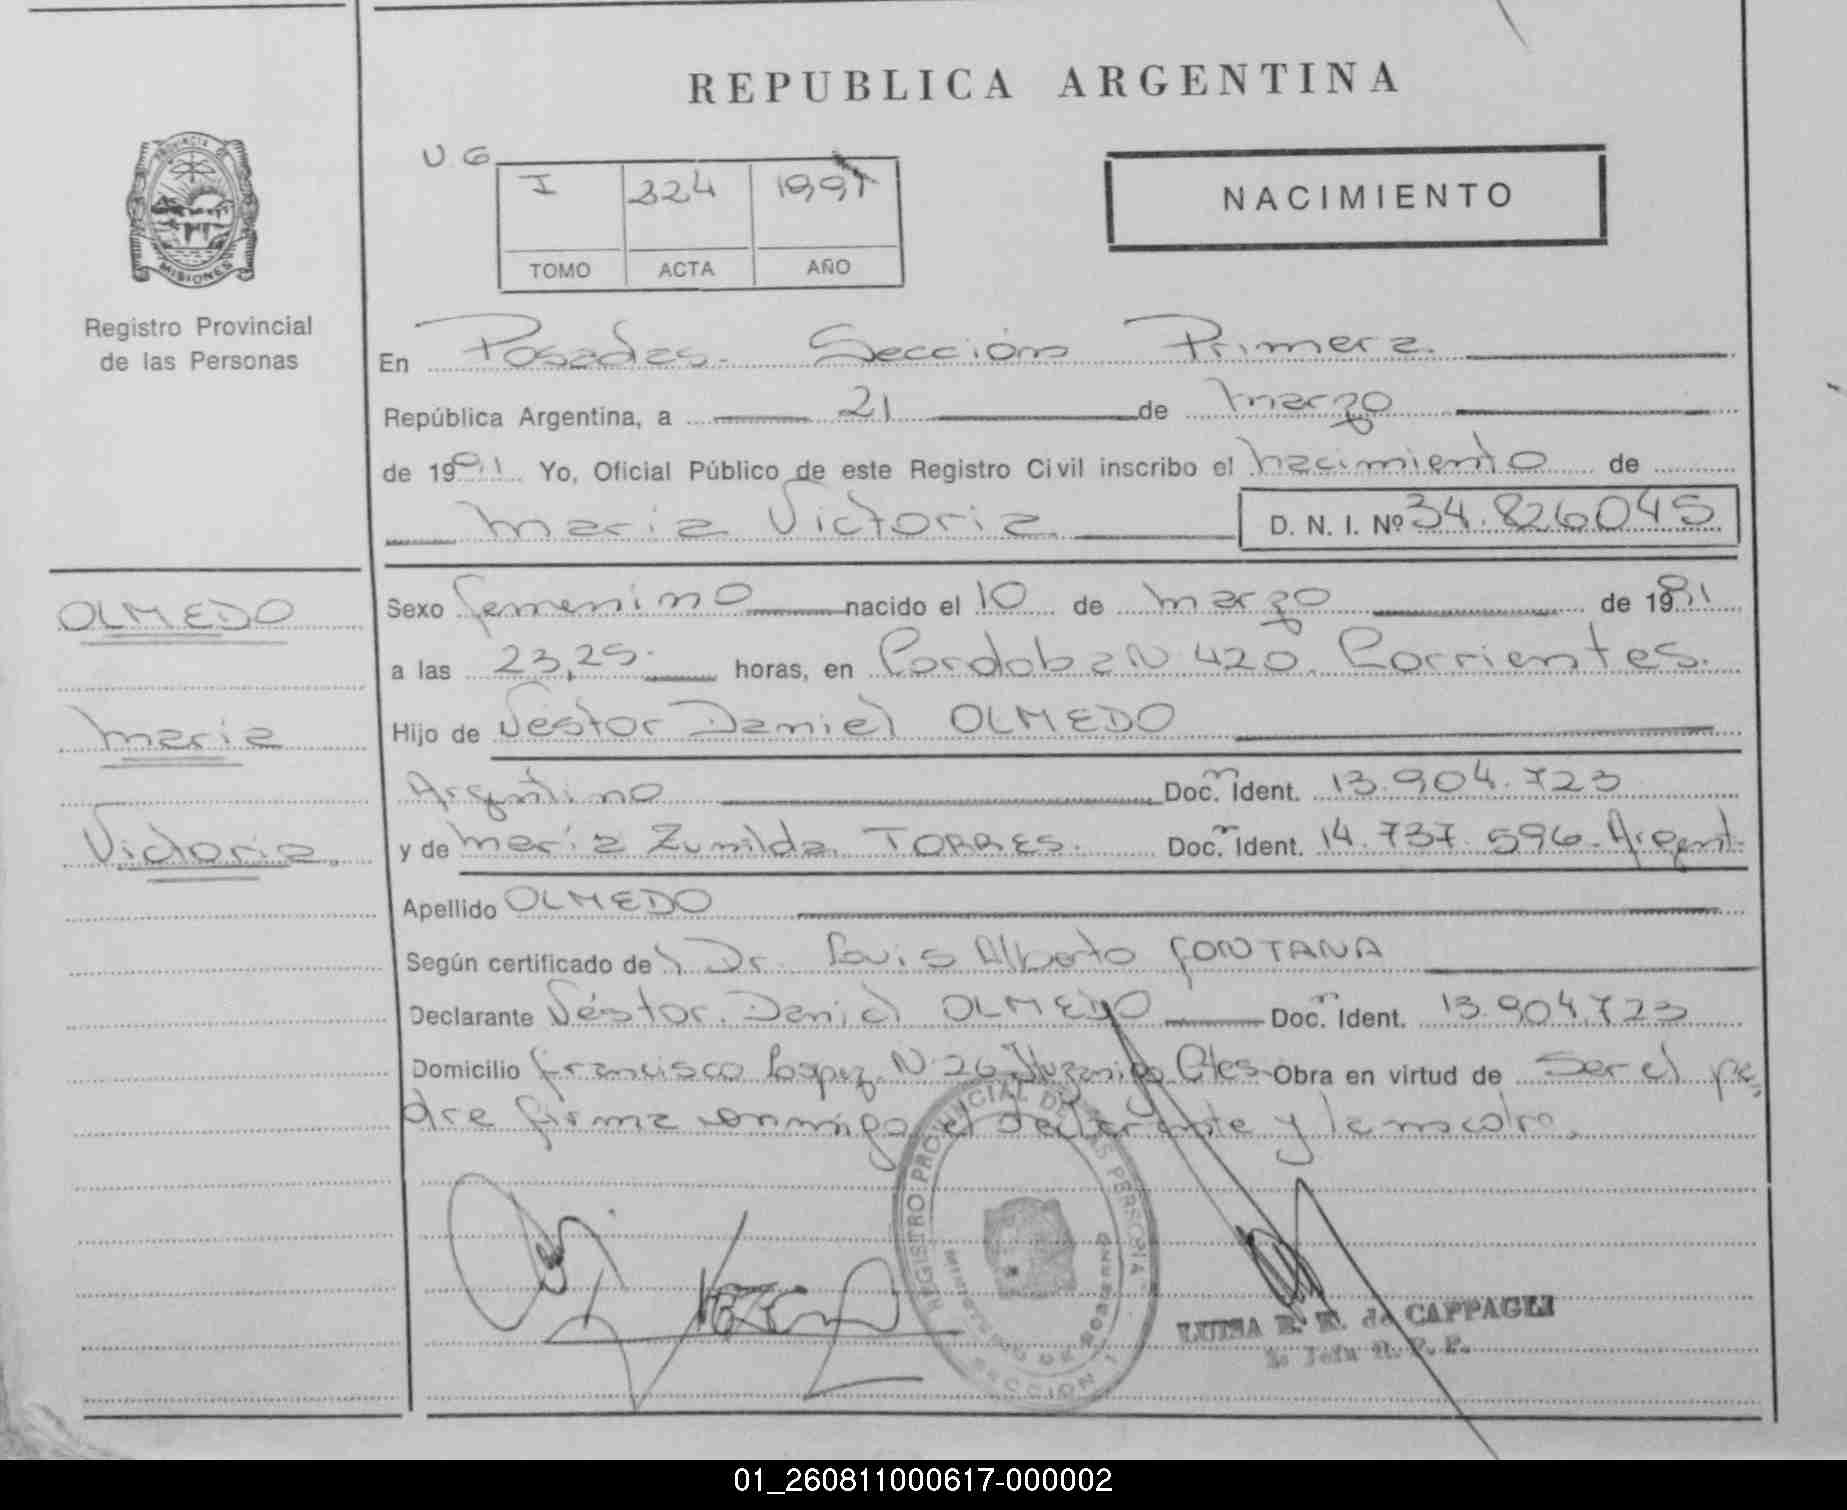 REPUBLICA ARGENTINA
PROVINCIA DE
MISIONES
Registro Provincial
de las Personas
U G
I 324 1991
TOMO ACTA AÑO
NACIMIENTO
En Posadas. Sección Primera.
República Argentina, a 21 de marzo
de 1991 Yo, Oficial Público de este Registro Civil inscribo el nacimiento de
maria Victoria. D. N. I. Nº 34.826045
OLMEDO
maria
Victoria.
Sexo femenino nacido el 10 de marzo de 1991
a las 23,25. horas, en Cordoba N 420. Corrientes.
Hijo de Néstor Daniel OLMEDO
Argentino Doc. Ident. 13.904.723
y de maría Zunilda TORRES. Doc. Ident. 14.737.596. Argent.
Apellido OLMEDO
Según certificado de Dr. Luis Alberto FONTANA
Declarante Néstor. Daniel OLMEDO Doc. Ident. 13.904.723
Domicilio Francisco Lopez N 26 Ituzaingo Ctes Obra en virtud de ser el pa
dre firma conmigo el declarante y la madre.
REGISTRO PROVINCIAL DE LAS PERSONAS
MINISTERIO DE GOBIERNO
SECCION 1
LUISA E. de CAPPAGLI
01_260811000617-000002